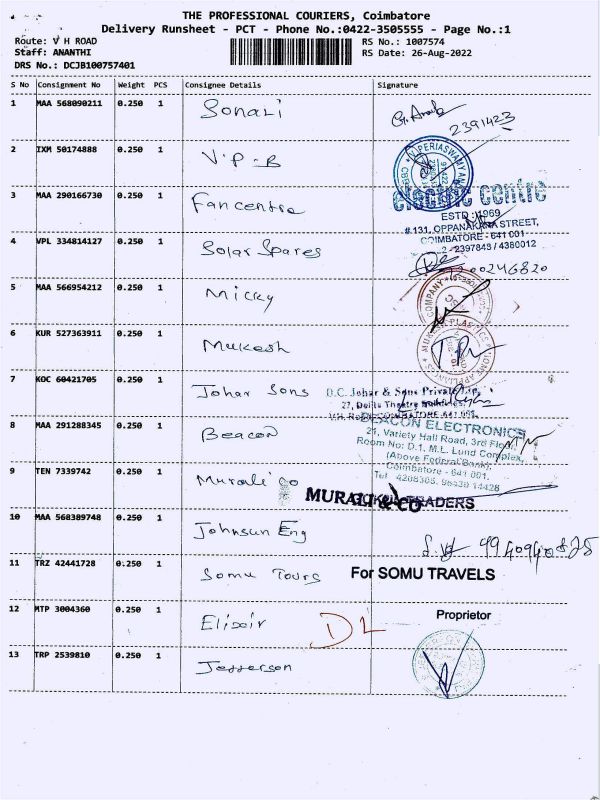 THE PROFESSIONAL COURIERS, Coimbatore
Delivery Runsheet - PCT - Phone No.:0422-3505555 - Page No.:1
Route: V H ROAD
RS No.: 1007574
Staff: ANANTHI
RS Date: 26-Aug-2022
DRS No.: DCJB100757401
S No Consignment No Weight PCS Consignee Details Signature
1 MAA 568090211 0.250 1 Sonali
2391423
2 IXM 50174888 0.250 1 V.P-B
V.PERIASWAMY
3 MAA 290166730 0.250 1 Fancentre
electric centre
ESTD : 1969
# 131, OPPANAKARA STREET,
COIMBATORE - 641 001
2397848 / 4380012
4 VPL 334814127 0.250 1 Solar Spares
5 MAA 566954212 0.250 1 Micky
COMPANY
6 KUR 527363911 0.250 1 Mukesh
MUKESH PLASTICS HOME APPLIANCES
7 KOC 60421705 0.250 1 Johar Sons
D.C. Johar & Sons Private Ltd.,
27, Delite Theatre
V.H. Road, COIMBATORE-641 001.
8 MAA 291288345 0.250 1 Beacon
BEACON ELECTRONICS
21, Variety Hall Road, 3rd Floor,
Room No: D.1, M.L. Lund Complex,
(Above Federal Bank),
Coimbatore - 641 001.
9 TEN 7339742 0.250 1 Murali co
MURALI & CO
TRADERS
10 MAA 568389748 0.250 1 Johnsun Eng
11 TRZ 42441728 0.250 1 Somu Tours
For SOMU TRAVELS
12 MTP 3004360 0.250 1 Elixir
DL
Proprietor
13 TRP 2539810 0.250 1 Jefferson